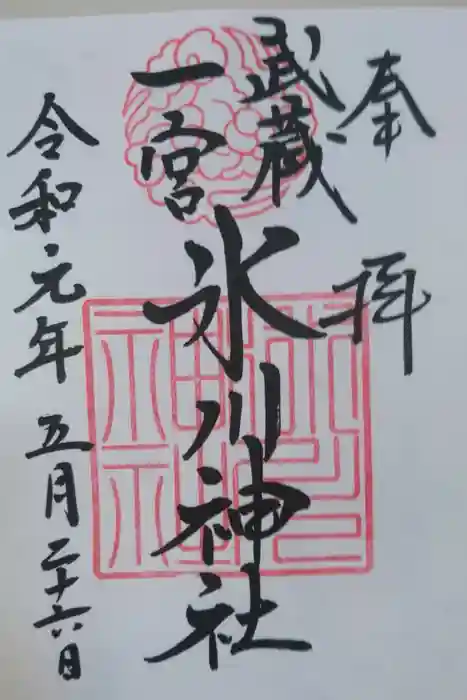 奉拝
武蔵
一宮
氷川神社
令和元年五月二十六日
氷川神社